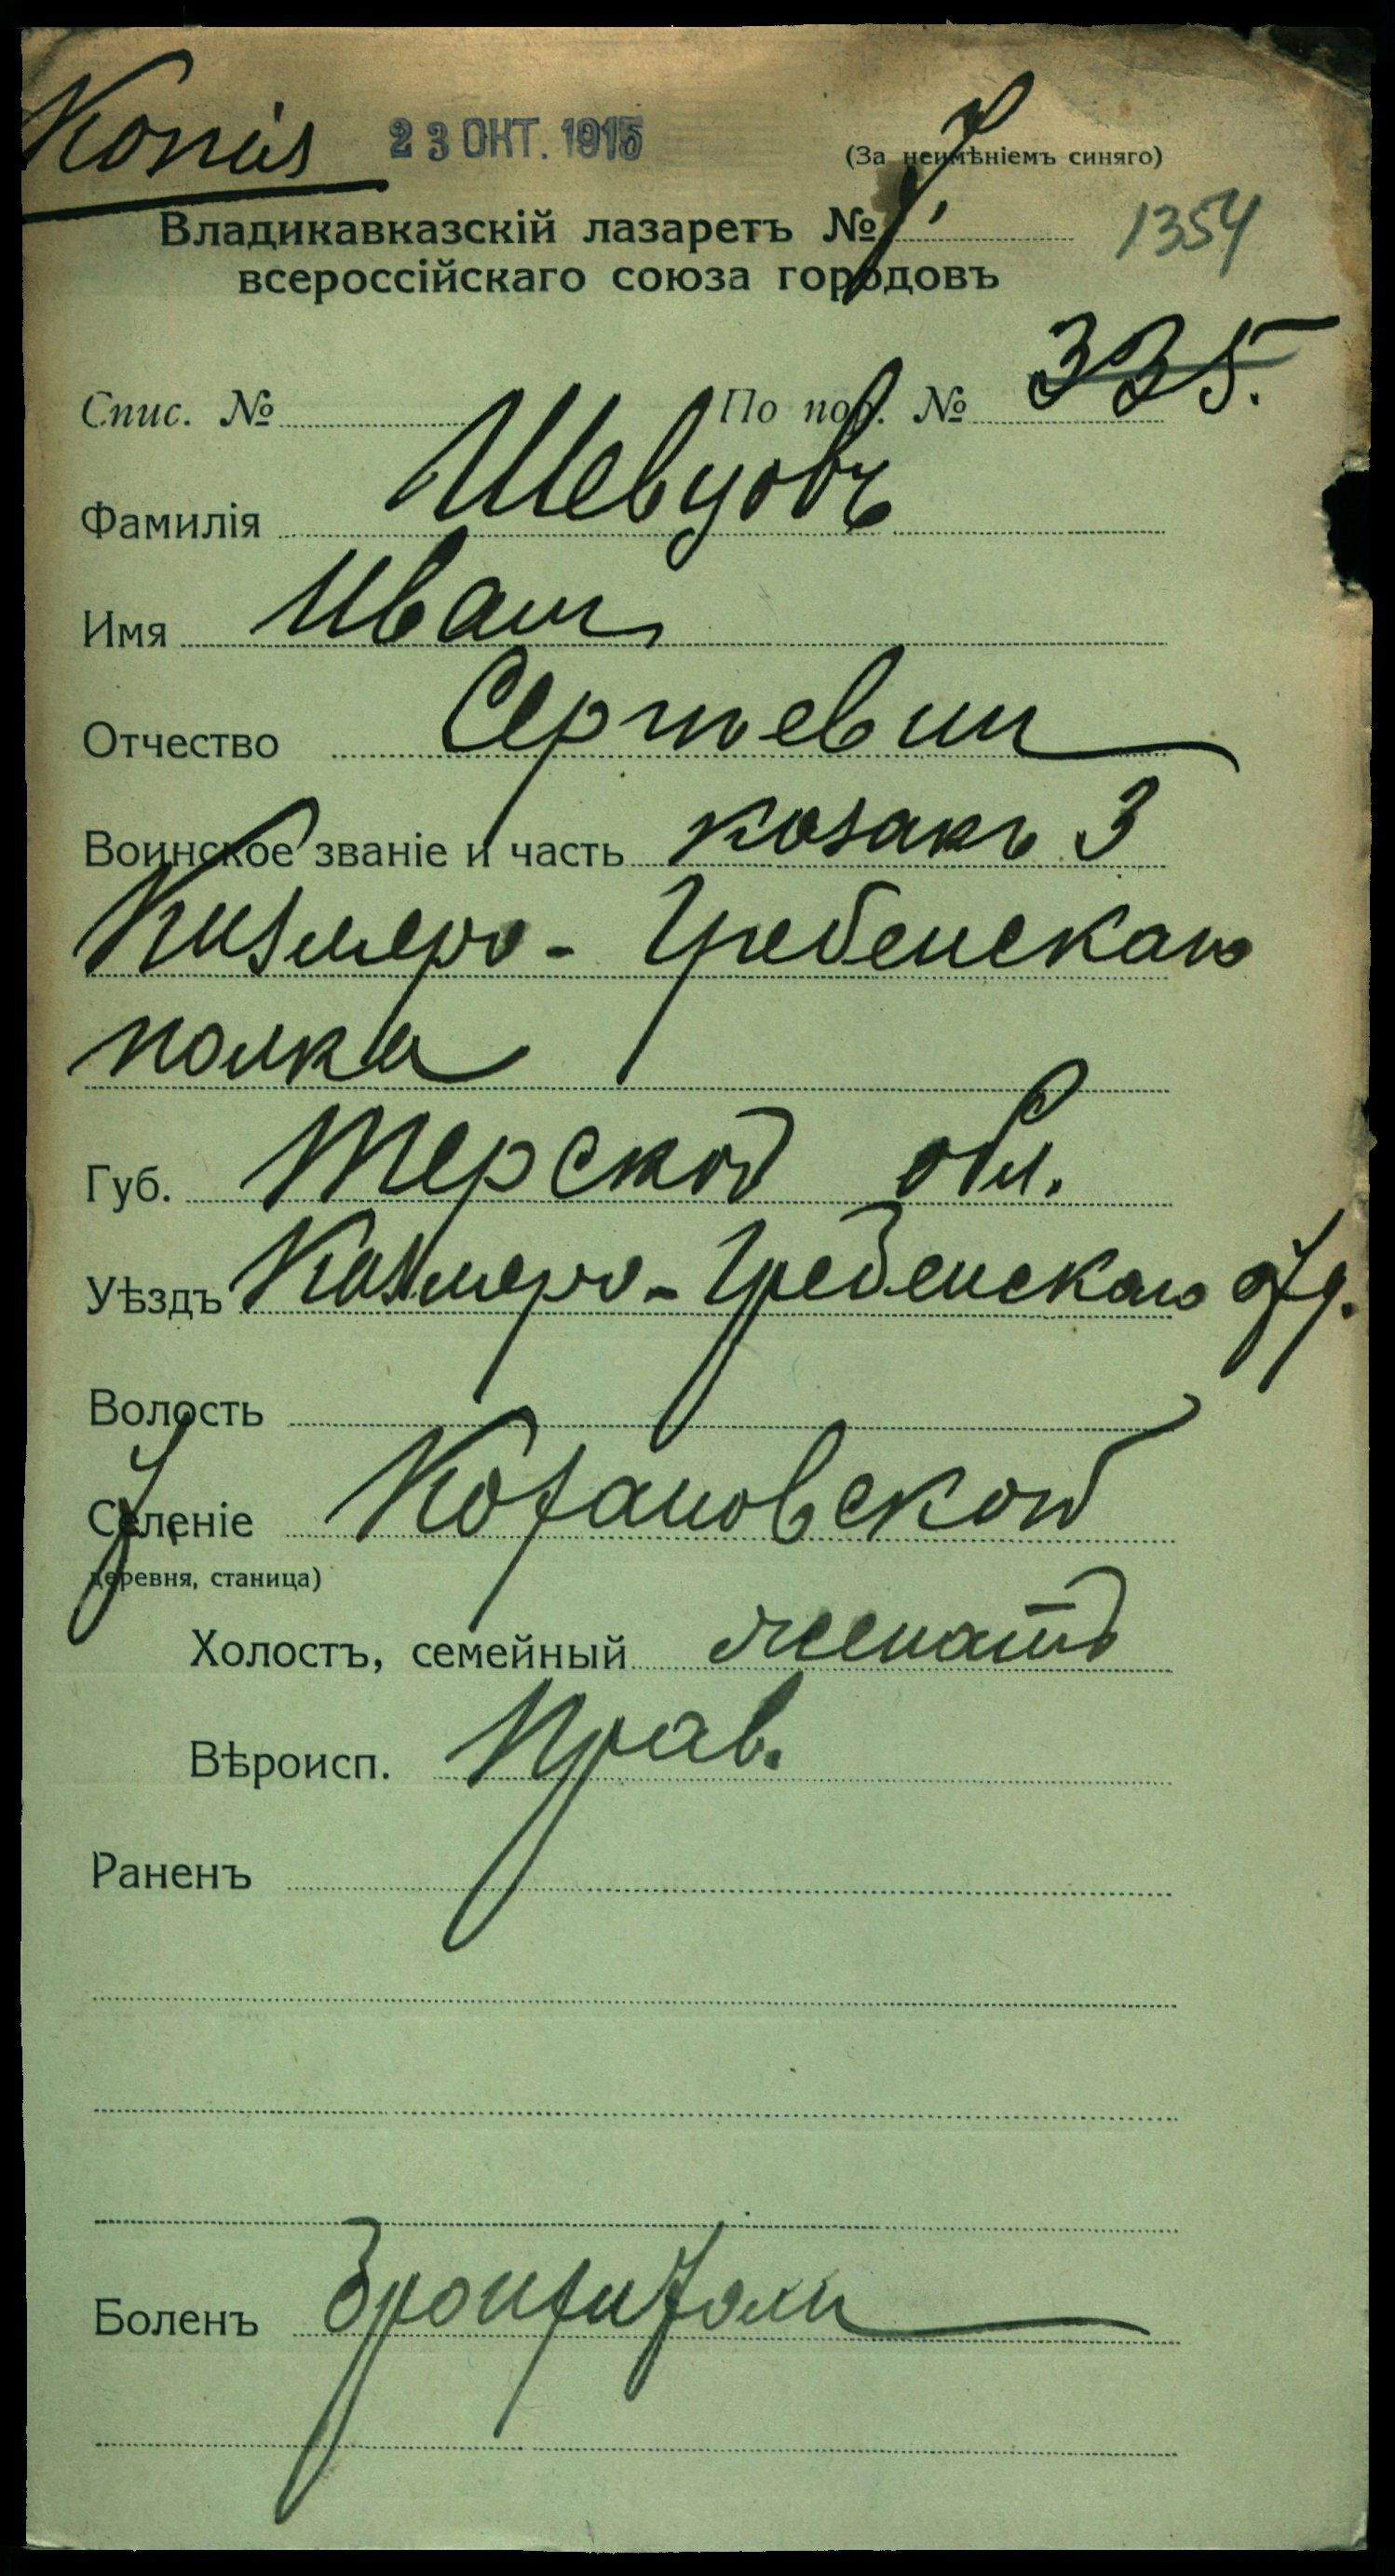 Копія 23 ОКТ. 1915
(За неимѣніемъ синяго)
Владикавказскій лазаретъ № 1354
всероссійскаго союза городовъ
Спис. № По пор. № 335.
Фамилія Шевцовъ
Имя Иванъ
Отчество Сергѣевич
Воинское званіе и часть козакъ 3
Кизляро-Гребенскаго
полка
Губ. Терской обл.
Уѣздъ Кизляро-Гребенскаго отд.
Волость
Селеніе
деревня, станица)
Холостъ, семейный женатъ
Вѣроисп. Прав.
Раненъ
Боленъ